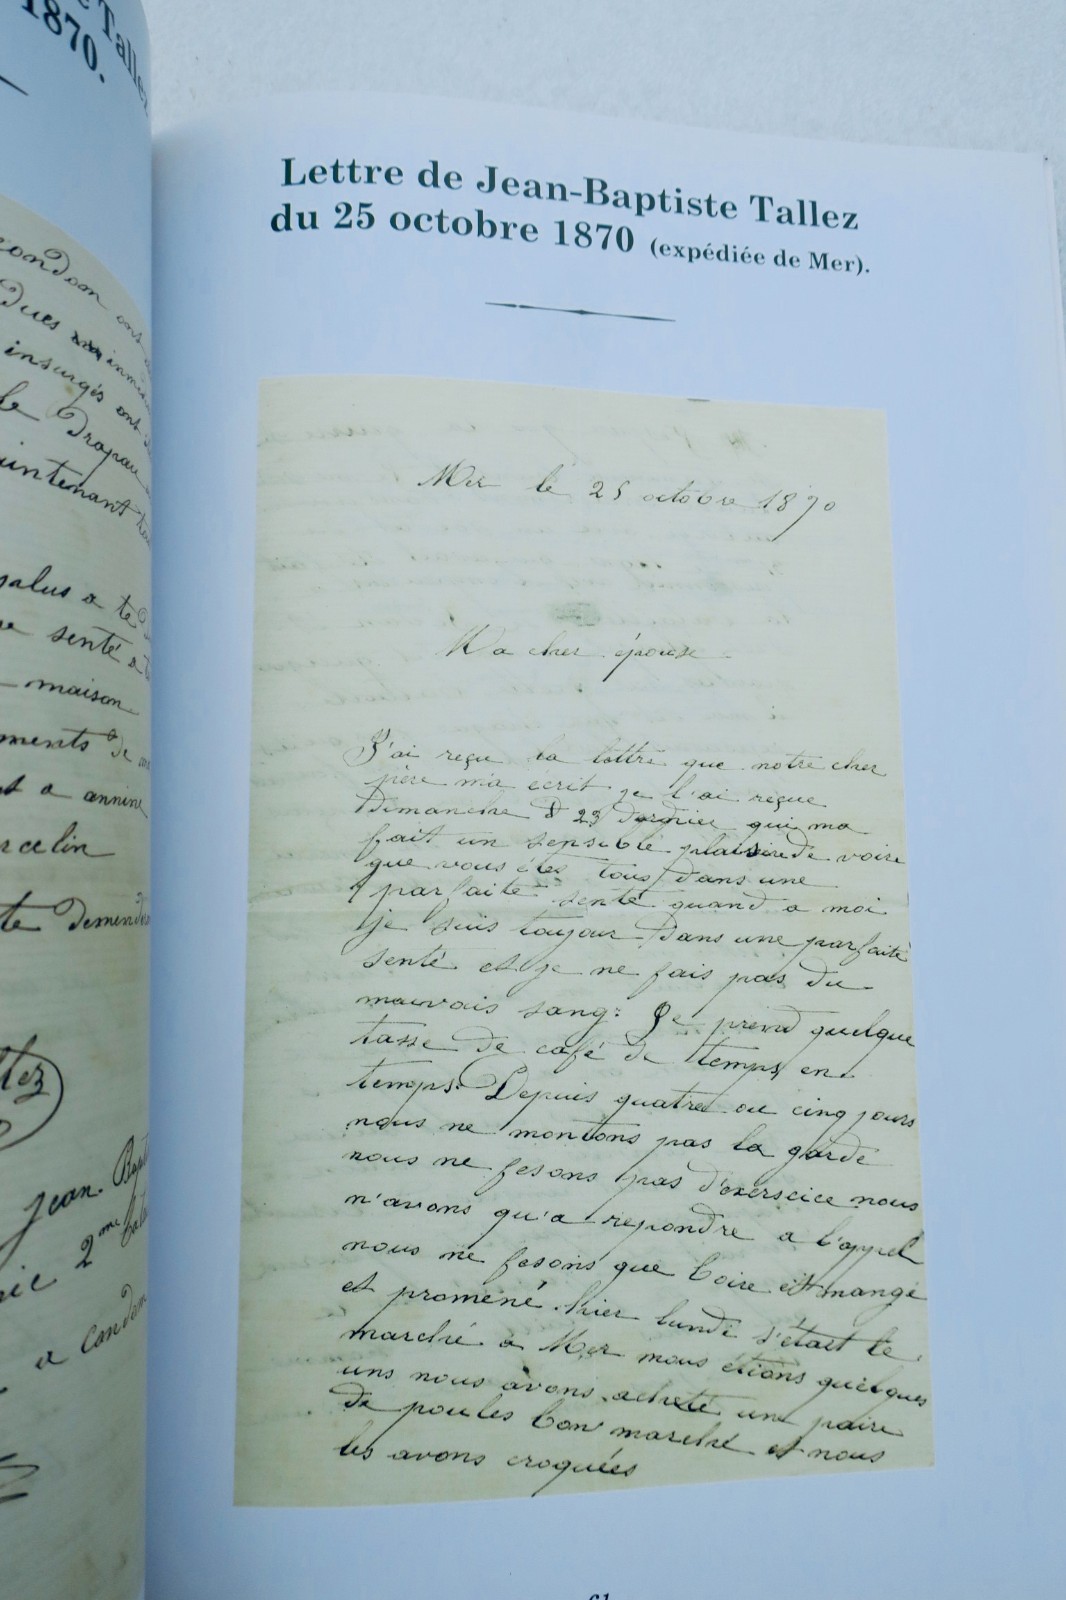 e Tallez
1870.
condom ont
dues inm
insurgés ont
le Drapau
maintenant
salus a te
senté a
maison
ments de
a annine
rcelin
te demend
llez
Jean. Bapt
2me
a Condom
Lettre de Jean-Baptiste Tallez
du 25 octobre 1870 (expédiée de Mer).
Mer le 25 octobre 1870
Ma cher épouse
J'ai reçu la lettre que notre cher
père m'a écrit je l'ai reçue
Dimanche 23 dernier qui ma
fait un sensible plaisire de voire
que vous êtes tous dans une
parfaite senté quand a moi
je suis toujour dans une parfaite
senté et je ne fais pas du
mauvais sang. Je prend quelque
tasse de café de temps en
temps. Depuis quatre ou cinq jours
nous ne montons pas la garde
nous ne fesons pas d'exerscice nous
n'avons qu'a repondre a l'appel
nous ne fesons que boire et mangé
et promené. hier lundi s'était le
marché a Mer nous étions quelques
uns nous avons acheté un paire
de poules bon marché et nous
les avons croquées
61